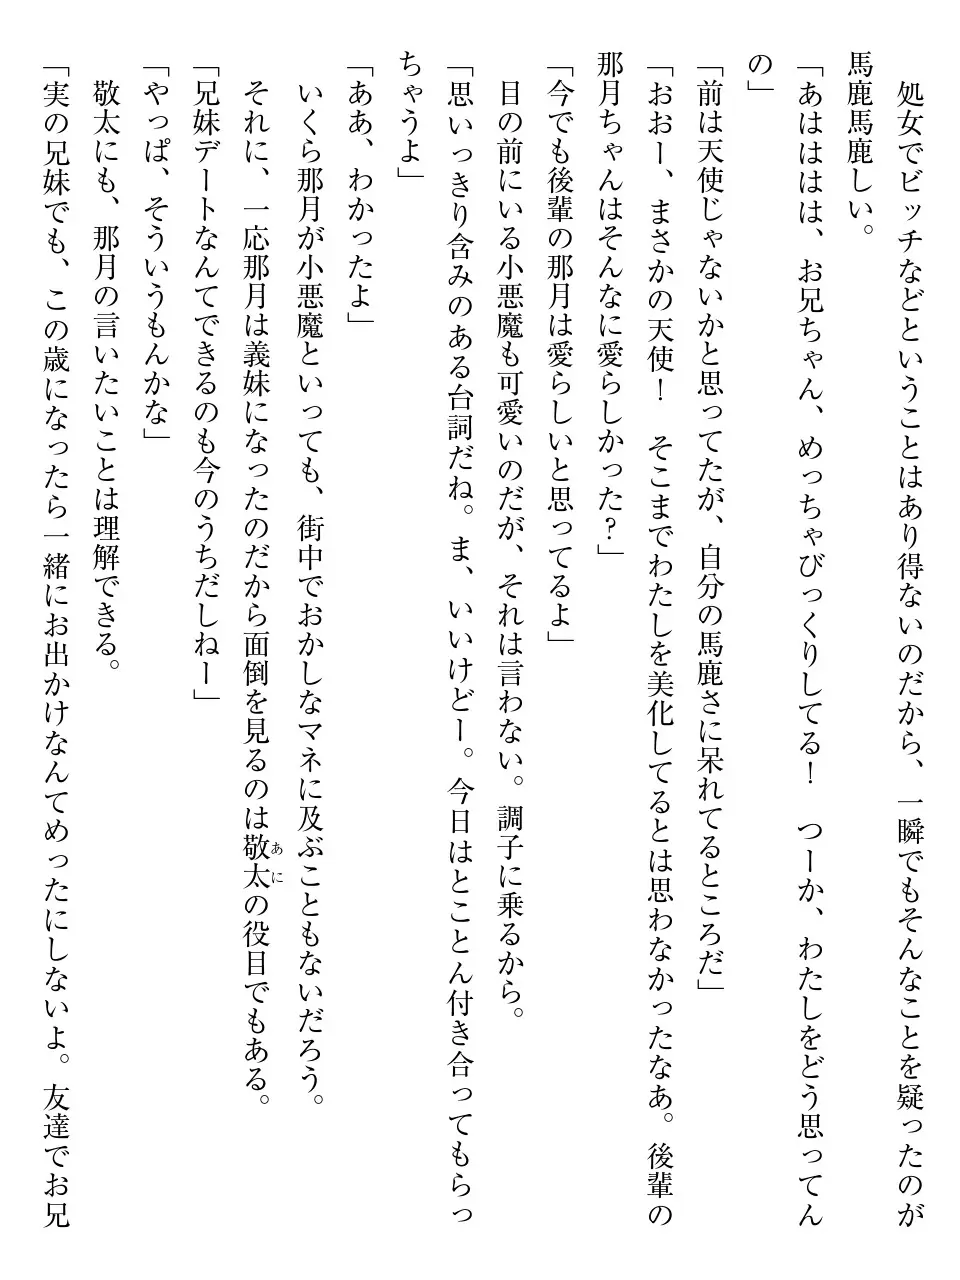 処女でビッチなどということはあり得ないのだから、一瞬でもそんなことを疑ったのが
馬鹿馬鹿しい。
「あはははは、お兄ちゃん、めっちゃびっくりしてる！　つーか、わたしをどう思ってん
の」
「前は天使じゃないかと思ってたが、自分の馬鹿さに呆れてるところだ」
「おおー、まさかの天使！　そこまでわたしを美化してるとは思わなかったなあ。後輩の
那月ちゃんはそんなに愛らしかった？」
「今でも後輩の那月は愛らしいと思ってるよ」
目の前にいる小悪魔も可愛いのだが、それは言わない。調子に乗るから。
「思いっきり含みのある台詞だね。ま、いいけどー。今日はとことん付き合ってもらっ
ちゃうよ」
「ああ、わかったよ」
いくら那月が小悪魔といっても、街中でおかしなマネに及ぶこともないだろう。
それに、一応那月は義妹になったのだから面倒を見るのは敬太（あに）の役目でもある。
「兄妹デートなんてできるのも今のうちだしねー」
「やっぱ、そういうもんかな」
敬太にも、那月の言いたいことは理解できる。
「実の兄妹でも、この歳になったら一緒にお出かけなんてめったにしないよ。友達でお兄